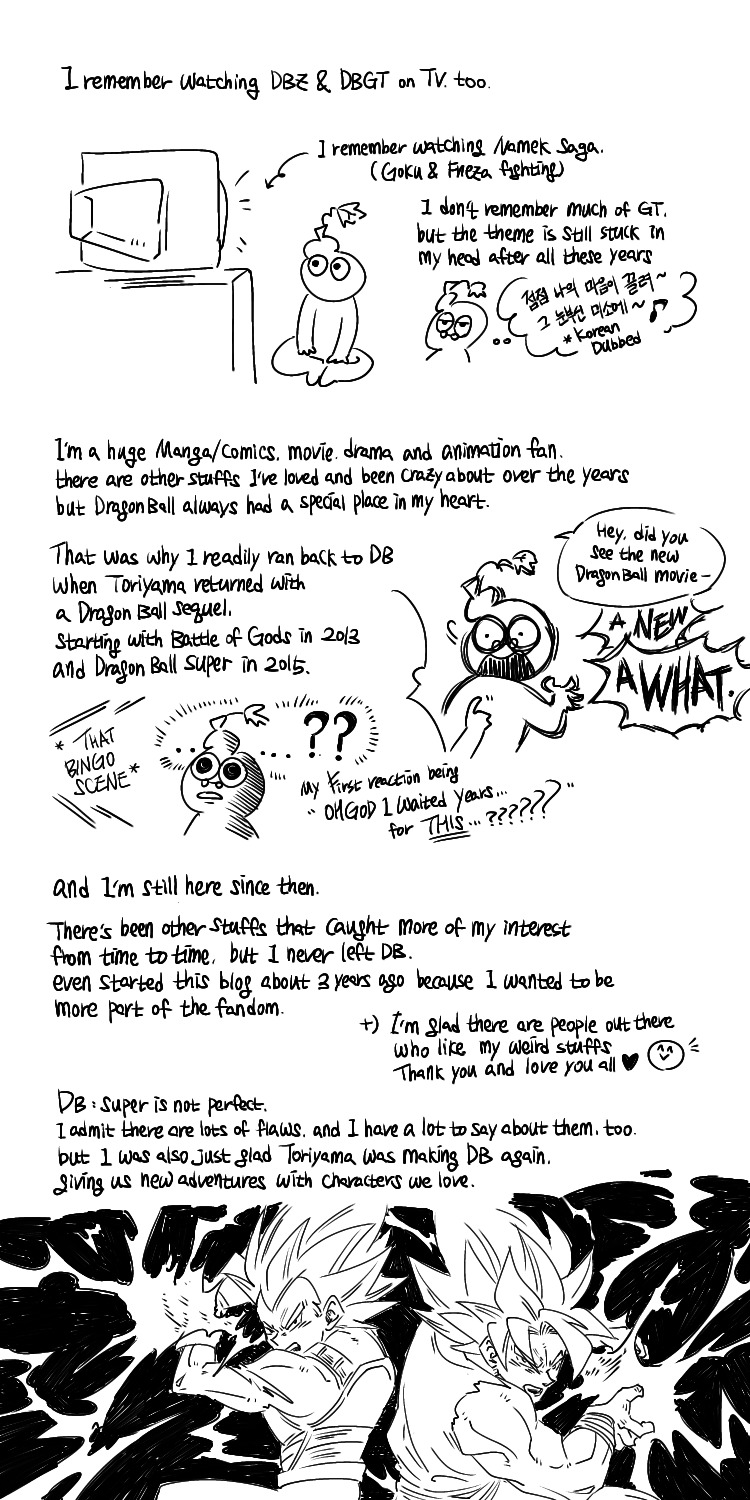 I remember watching DBZ & DBGT on TV. too.
I remember watching Namek Saga.
(Goku & Frieza fighting)
I don't remember much of GT.
but the theme is still stuck in
my head after all these years
점점 나의 마음이 끌려~
그 눈부신 미소에~
*Korean
Dubbed
I'm a huge Manga/Comics. movie. drama and animation fan.
there are other stuffs I've loved and been crazy about over the years
but DragonBall always had a special place in my heart.
That was why I readily ran back to DB
when Toriyama returned with
a Dragon Ball sequel.
starting with Battle of Gods in 2013
and Dragon Ball Super in 2015.
Hey, did you
see the new
DragonBall movie-
A NEW
A WHAT.
* THAT
BINGO
SCENE *
... ... ??
My first reaction being
"OMGOD I waited years...
for THIS...??????"
and I'm still here since then.
There's been other stuffs that caught more of my interest
from time to time, but I never left DB.
even started this blog about 3 years ago because I wanted to be
more part of the fandom.
+) I'm glad there are people out there
who like my weird stuffs
Thank you and love you all ♥
DB: Super is not perfect.
I admit there are lots of flaws, and I have a lot to say about them. too.
but I was also just glad Toriyama was making DB again.
giving us new adventures with characters we love.